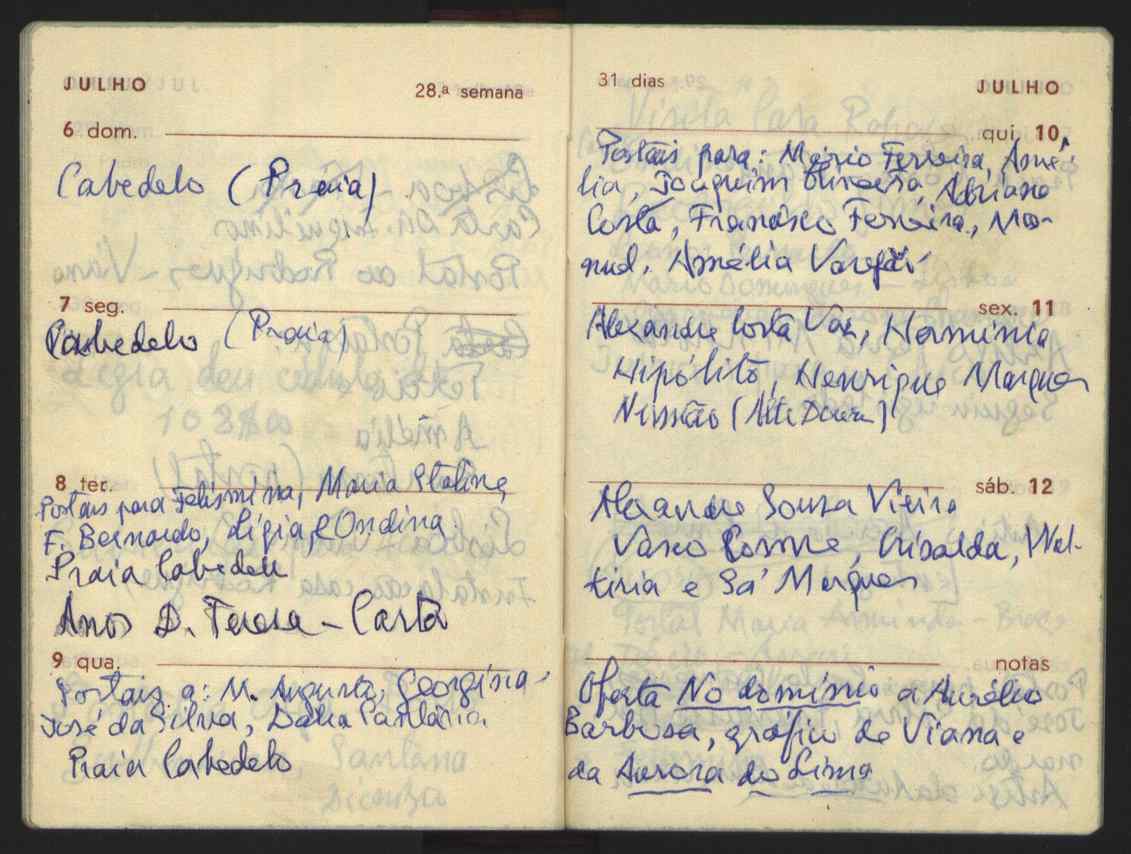 JULHO
28.ª semana
6 dom.
Cabedelo (Praia)
7 seg.
Cabedelo (Praia)
8 ter.
Postais para Felismina, Maria
F. Bernardo, Lígia e Ondina
Praia Cabedelo
Anos D. Teresa - Carta
9 qua.
Postais a: M. Augusta, Georgina,
José da Silva, Dália
Praia Cabedelo
31 dias
JULHO
qui. 10
Postais para: Mário Ferreira, Amé-
lia, Joaquim Oliveira, Adriano
Costa, Francisco Ferreira, Ma-
nuel, Amélia
sex. 11
Alexandre Costa Vaz, Hermínia
Hipólito, Henrique Marques
(Alte Douro)
sáb. 12
Alexandre Sousa Vieira
Vasco Cosme, Crisalda,
e Sá Marques
notas
Oferta No domínio a Aurélio
Barbosa, gráfico de Viana e
da Aurora do Lima